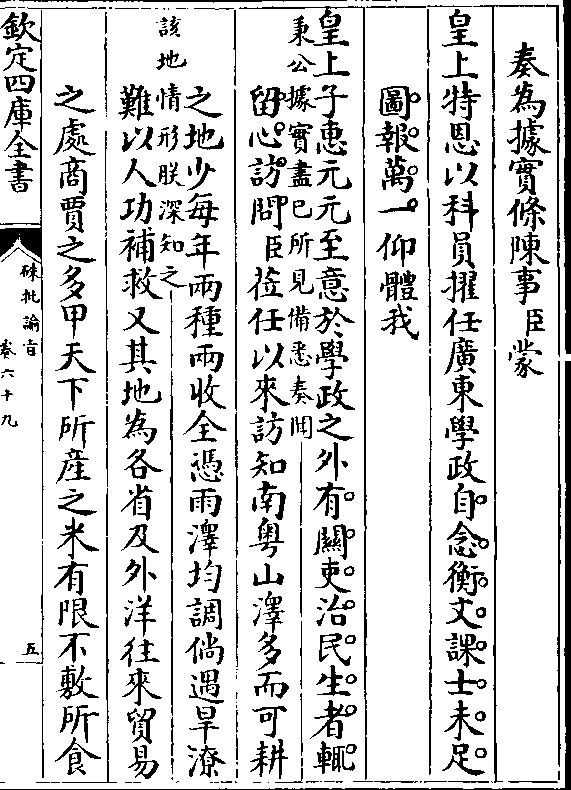 奏為據實條陳事臣蒙
皇上特恩以科員擢任廣東學政自念衡文課士未足
圖報萬一仰體我
皇上子惠元元至意於學政之外有關吏治民生者輒
秉公據實盡已所見備悉奏聞
留心訪問臣蒞任以來訪知南粤山澤多而可耕
之地少每年兩種兩收全憑雨澤均調倘遇旱潦
該地情形朕深知之
難以人功補救又其地為各省及外洋往來貿易
之處商賈之多甲天下所産之米有限不敷所食
欽定四庫全書
硃批諭旨
卷六十九
五